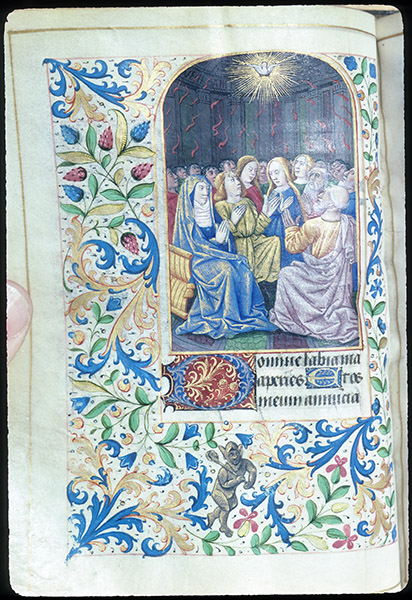 Domine labia mea
aperies Et os
meum annuncia